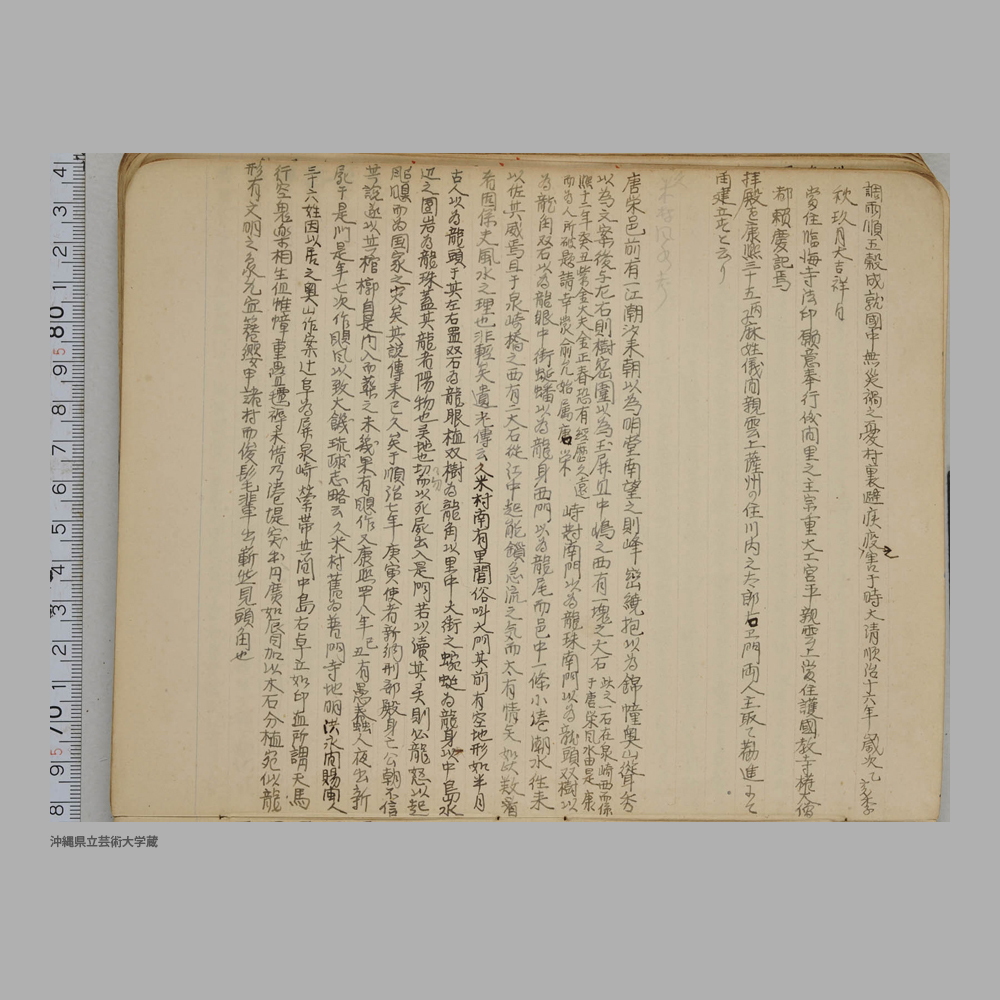 調雨順五穀成就國中無災禍之憂村裏避疾疫害于時大清順治十六年歳次乙亥季
秋玖月大吉祥日
當住臨海寺法印願意奉行俗間里之主宗重大工宮平親雲上當住護國教寺権大僧
都頼慶記焉
拝殿を康熙三十五丙麻姓儀間親雲上薩州の住川内之太郎右卫門両人主取て勧進みて
再建立せと云り
唐栄邑前有一江潮汐来朝以為明堂南望之則峰巒繞抱以為錦幢奥山聳秀
以為文案後与尼石則樹密圍以為玉屏且中嶋之西有一塊之大石
此之一石在泉崎西而係于唐栄風水由是康
熙十二年癸丑紫金大夫金正春恐有経歴久遠
而為人所破題請幸蒙俞允始属唐栄
峙對南門以為龍珠南門以為龍頭双樹以
為龍角双石以為龍眼中街蜒蟠以為龍身西門以為龍尾而邑中一條小港潮水往来
以佐其威焉且于泉崎橋之西有二大石從江中起能鎖急流之気而太有情矣如此数者
有因保夫風水之理也非軽矣遺光傳云久米村南有里閭俗叫大門其前有空地形如半月
古人以為龍頭于其左右置双石為龍眼植双樹為龍角以里中大街之蜿蜒為龍身以中島水
辺之圓岩為龍珠蓋其龍者陽物也灵地也切而以死屍出入是門若以瀆其灵則必龍怒以起
颶颶而為国家之灾矣其説傳来已久矣于順治七年庚寅使者新納刑部殿身亡公朝不信
其説遂以其棺槨自是門入而葬之未幾果有颶作又康熙四八年己丑有愚義蟻人夜出新
屍于是門是年七次作颶風以致大饑琉球志略云久米村舊為普門寺地明洪永間賜閩人
三十六姓因以居之奥山作案辻阜為屏泉崎縈帯其間中島右卓立如印血所謂天馬
行空鬼楽相生但帷幢重畳還得未借乃港堤突出円廣如辰旨加以木石分植宛似龍
形有文明之象允宜簪纓甲諸村而俊髦輩出嶄然見頭角也
沖縄県立芸術大学蔵